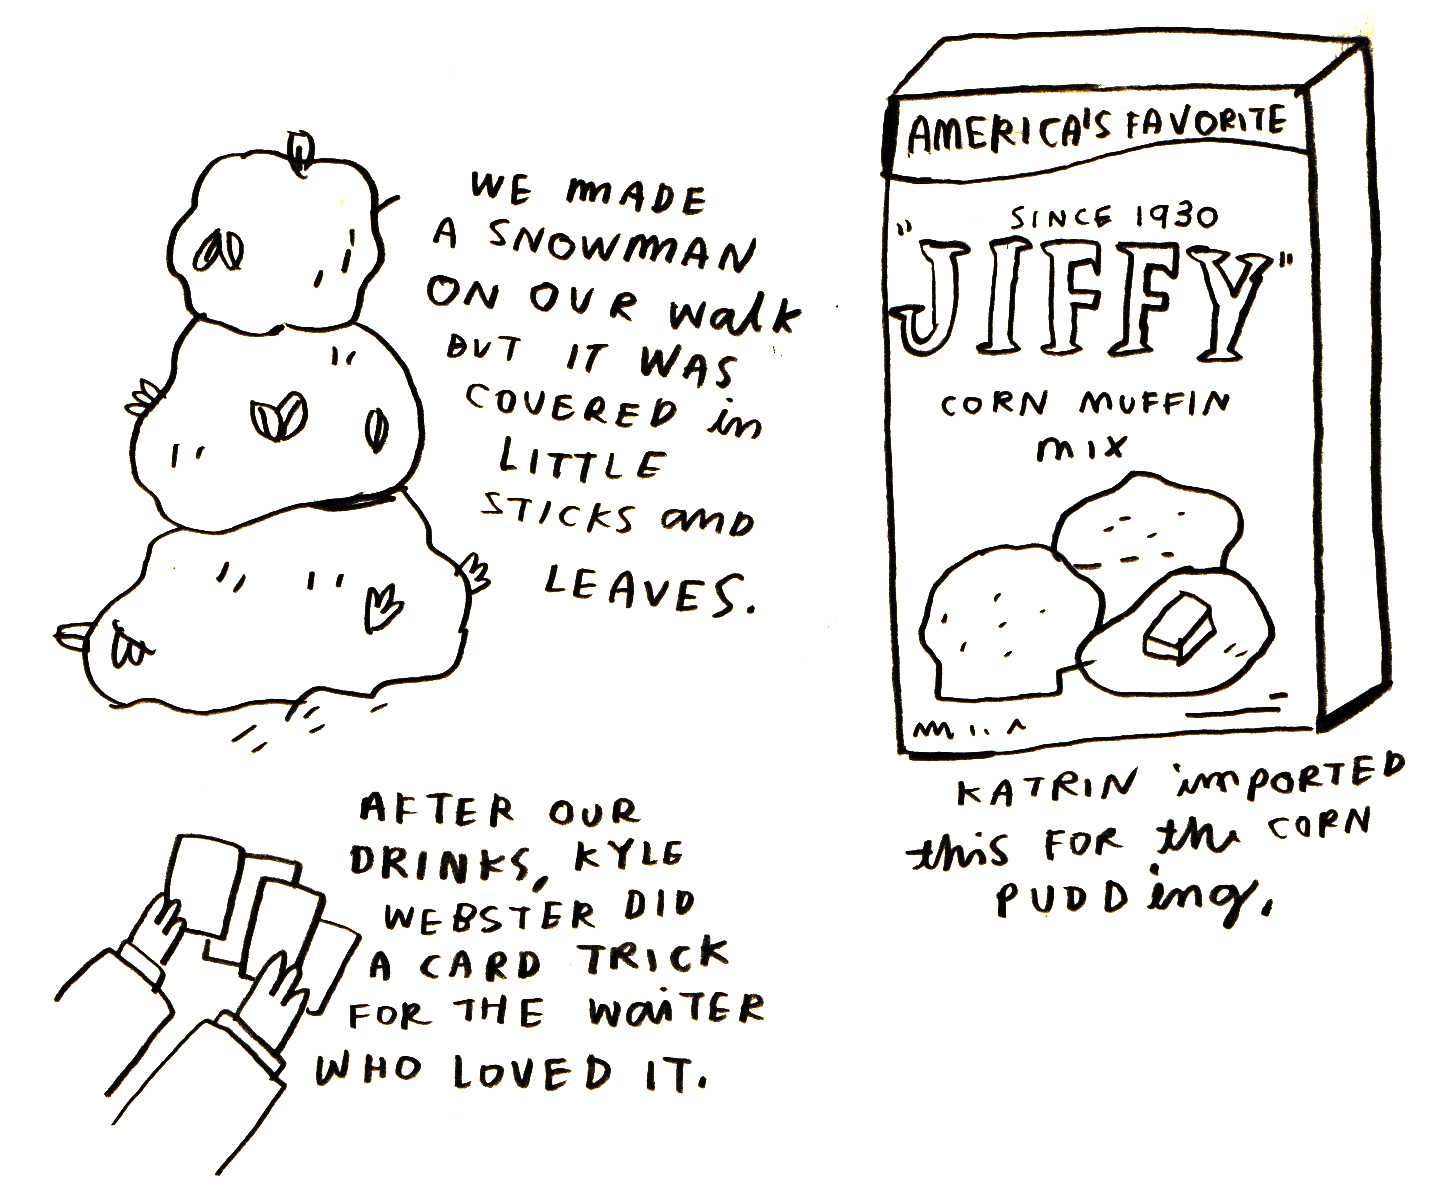 WE MADE
A SNOWMAN
ON OUR walk
BUT IT WAS
COVERED in
LITTLE
STICKS and
LEAVES.
AMERICA'S FAVORITE
SINCE 1930
"JIFFY"
CORN MUFFIN
MIX
KATRIN imPORTED
this FOR the CORN
PUDDing.
AFTER OUR
DRINKS, KYLE
WEBSTER DID
A CARD TRICK
FOR THE WaiTER
WHO LOVED IT.